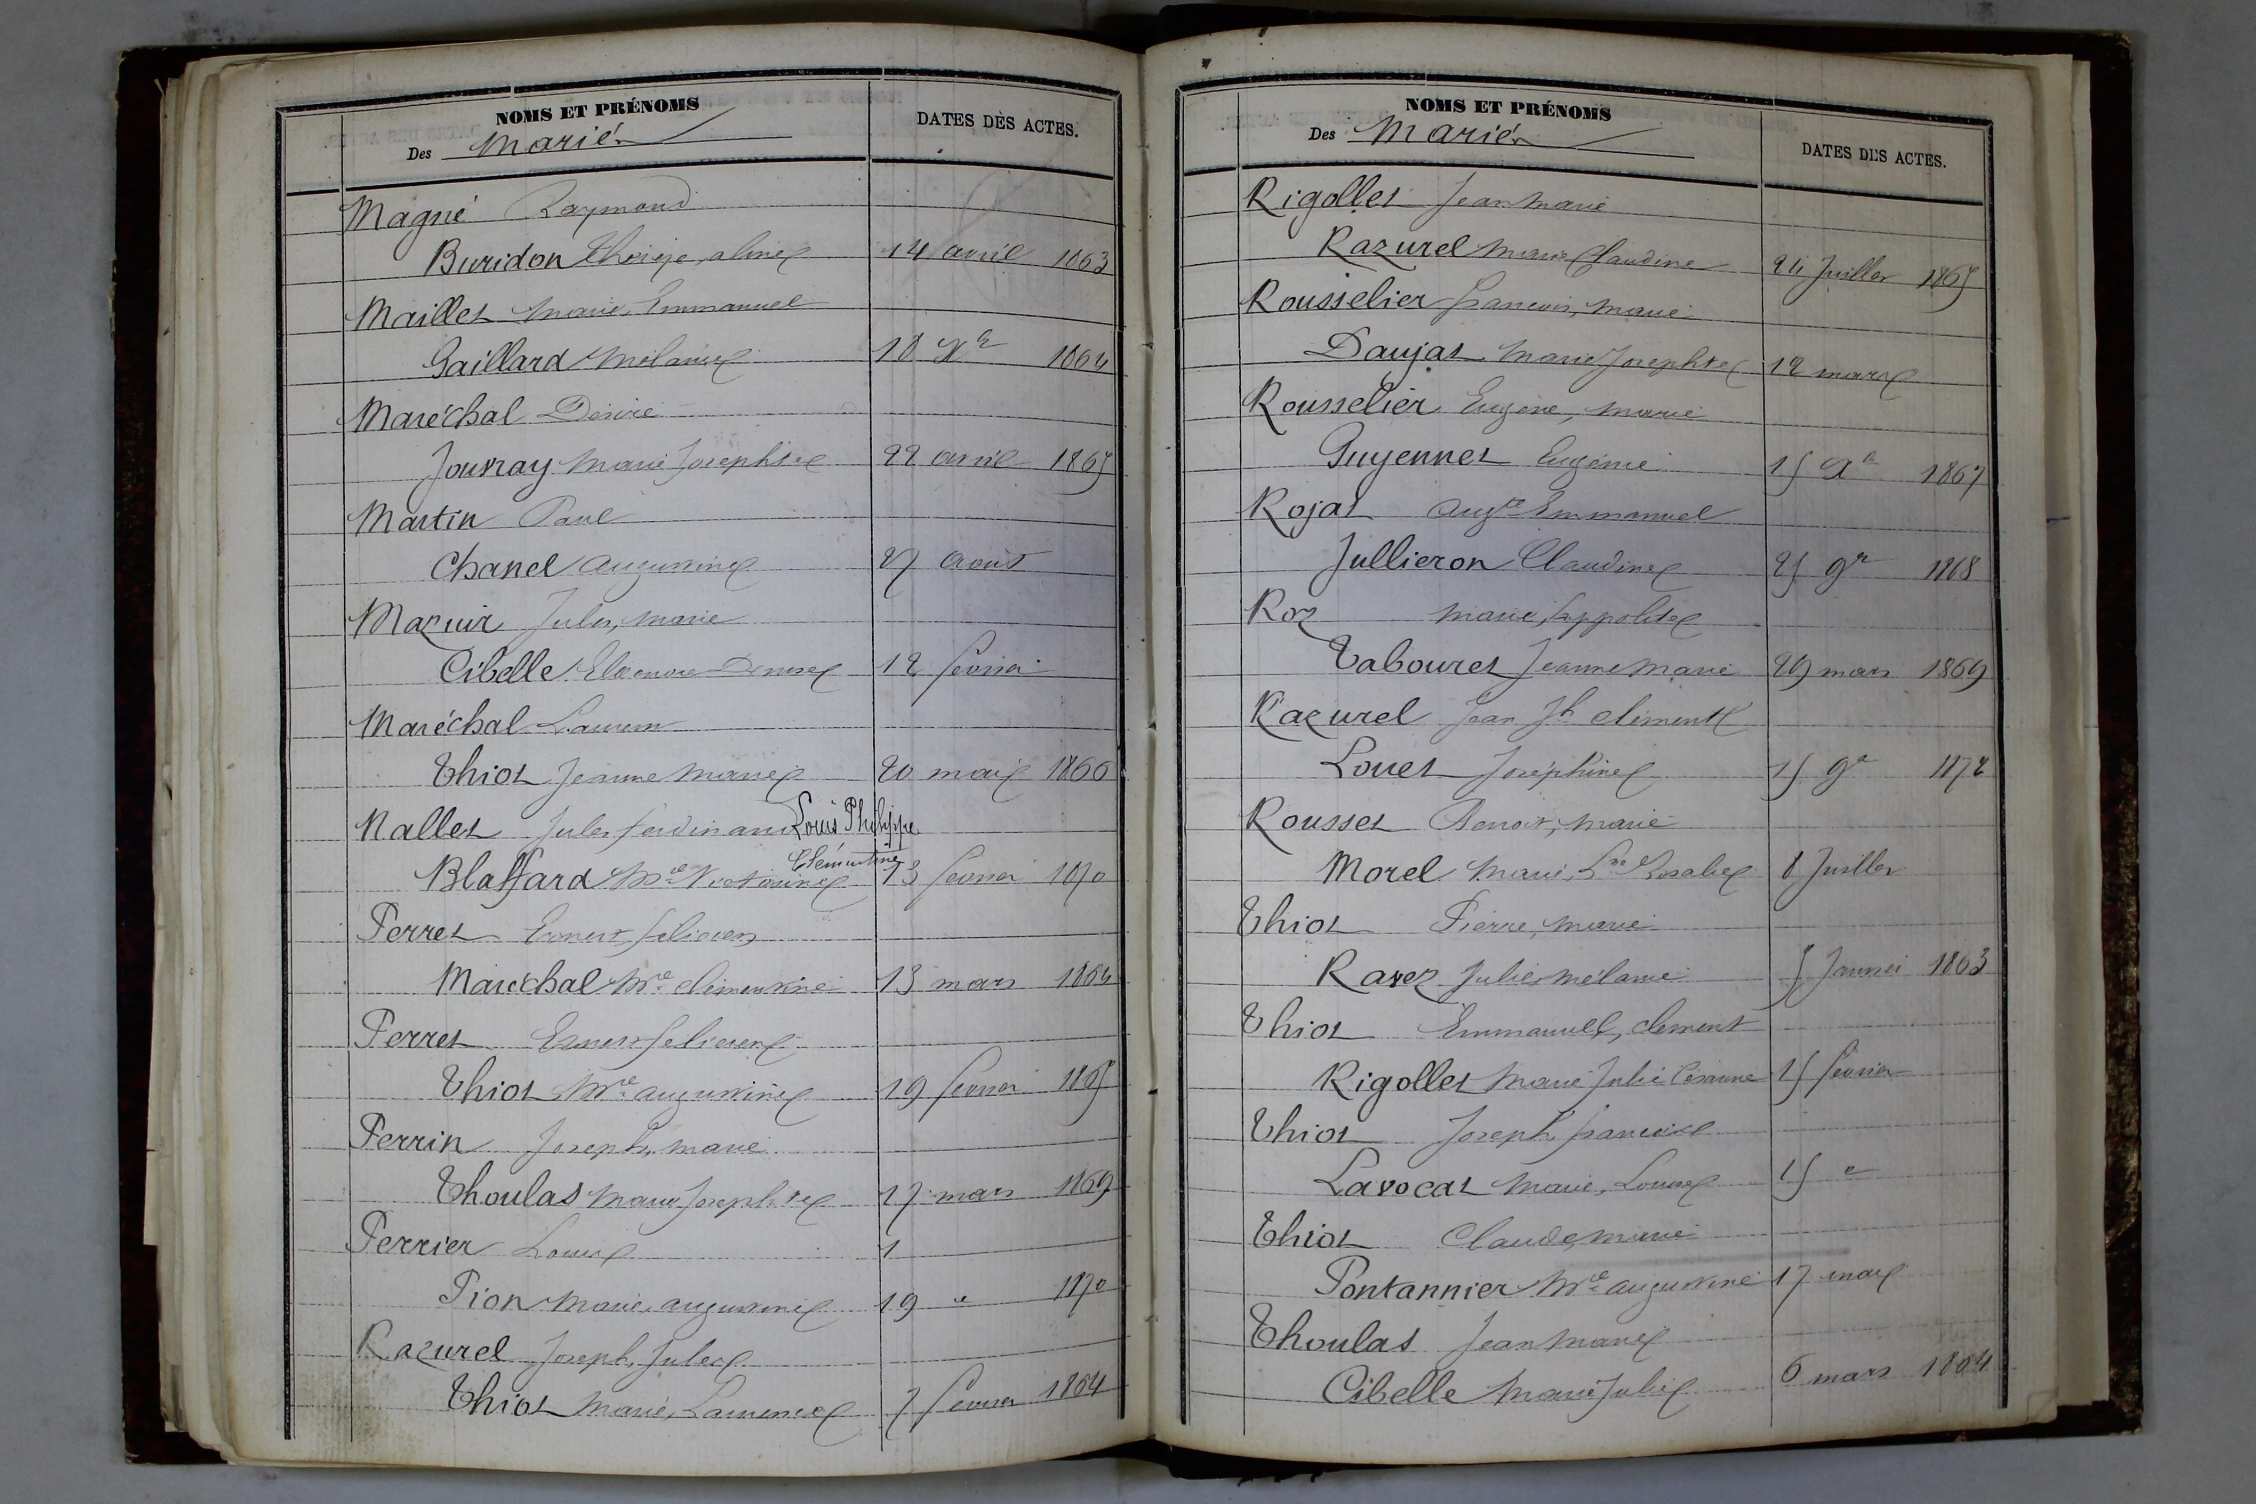 NOMS ET PRÉNOMS
Des Mariés
DATES DES ACTES.
Magné Raymond
Buridon Thérèze, aline 14 avril 1863
Maillet Marie, Emmanuel
Gaillard Mélanie 18 Xbre 1864
Maréchal Désiré
Jouvray Marie Josephte 22 avril 1865
Martin Paul
Chanel augustine 27 aout
Mazuir Jules, Marie
Cibelle Eléonore Denise 12 février
Maréchal Laurent
Thiot Jeanne Marie 20 mai 1866
Nallet Jules ferdinand Louis Philippe
Blaffard Mie Victorine Clémentine 13 février 1870
Perret Ernest félicien
Maréchal Mie clémentine 13 mars 1864
Perret Ernest félicien
Thiot Mie augustine 19 février 1865
Perrin Joseph, marie
Thoulas Marie Josephte 17 mars 1869
Perrier Louis 1
Pion Marie, augustine 19 " 1870
Razurel Joseph, Jules
Thiot Marie, Laurence 7 février 1864
NOMS ET PRÉNOMS
Des Mariés
DATES DES ACTES.
Rigollet Jean Marie
Razurel Marie Claudine 24 Juillet 1865
Rousselier francois, Marie
Daujat Marie Josephte 12 mars
Rousselier Eugène, Marie
Guyennet Eugénie 15 Xbre 1867
Rojat augte Emmanuel
Jullieron Claudine 25 9bre 1868
Roz Marie, hyppolite
Tabouret Jeanne Marie 29 mars 1869
Razurel Jean Jh clément
Louet Joséphine 15 9bre 1872
Rousset Benoit, Marie
Morel Marie, Lse Rosalie 8 Juillet
Thiot Pierre, Marie
Ravez Julie, Mélanie 5 Janvier 1863
Thiot Emmanuel, clément
Rigollet Marie Julie Césarine 15 février
Thiot Joseph, francois
Lavocat Marie, Louise 15 "
Thiot Claude, Marie
Pontannier Mie augustine 17 mai
Thoulas Jean Marie
Cibelle Marie Julie 6 mars 1864